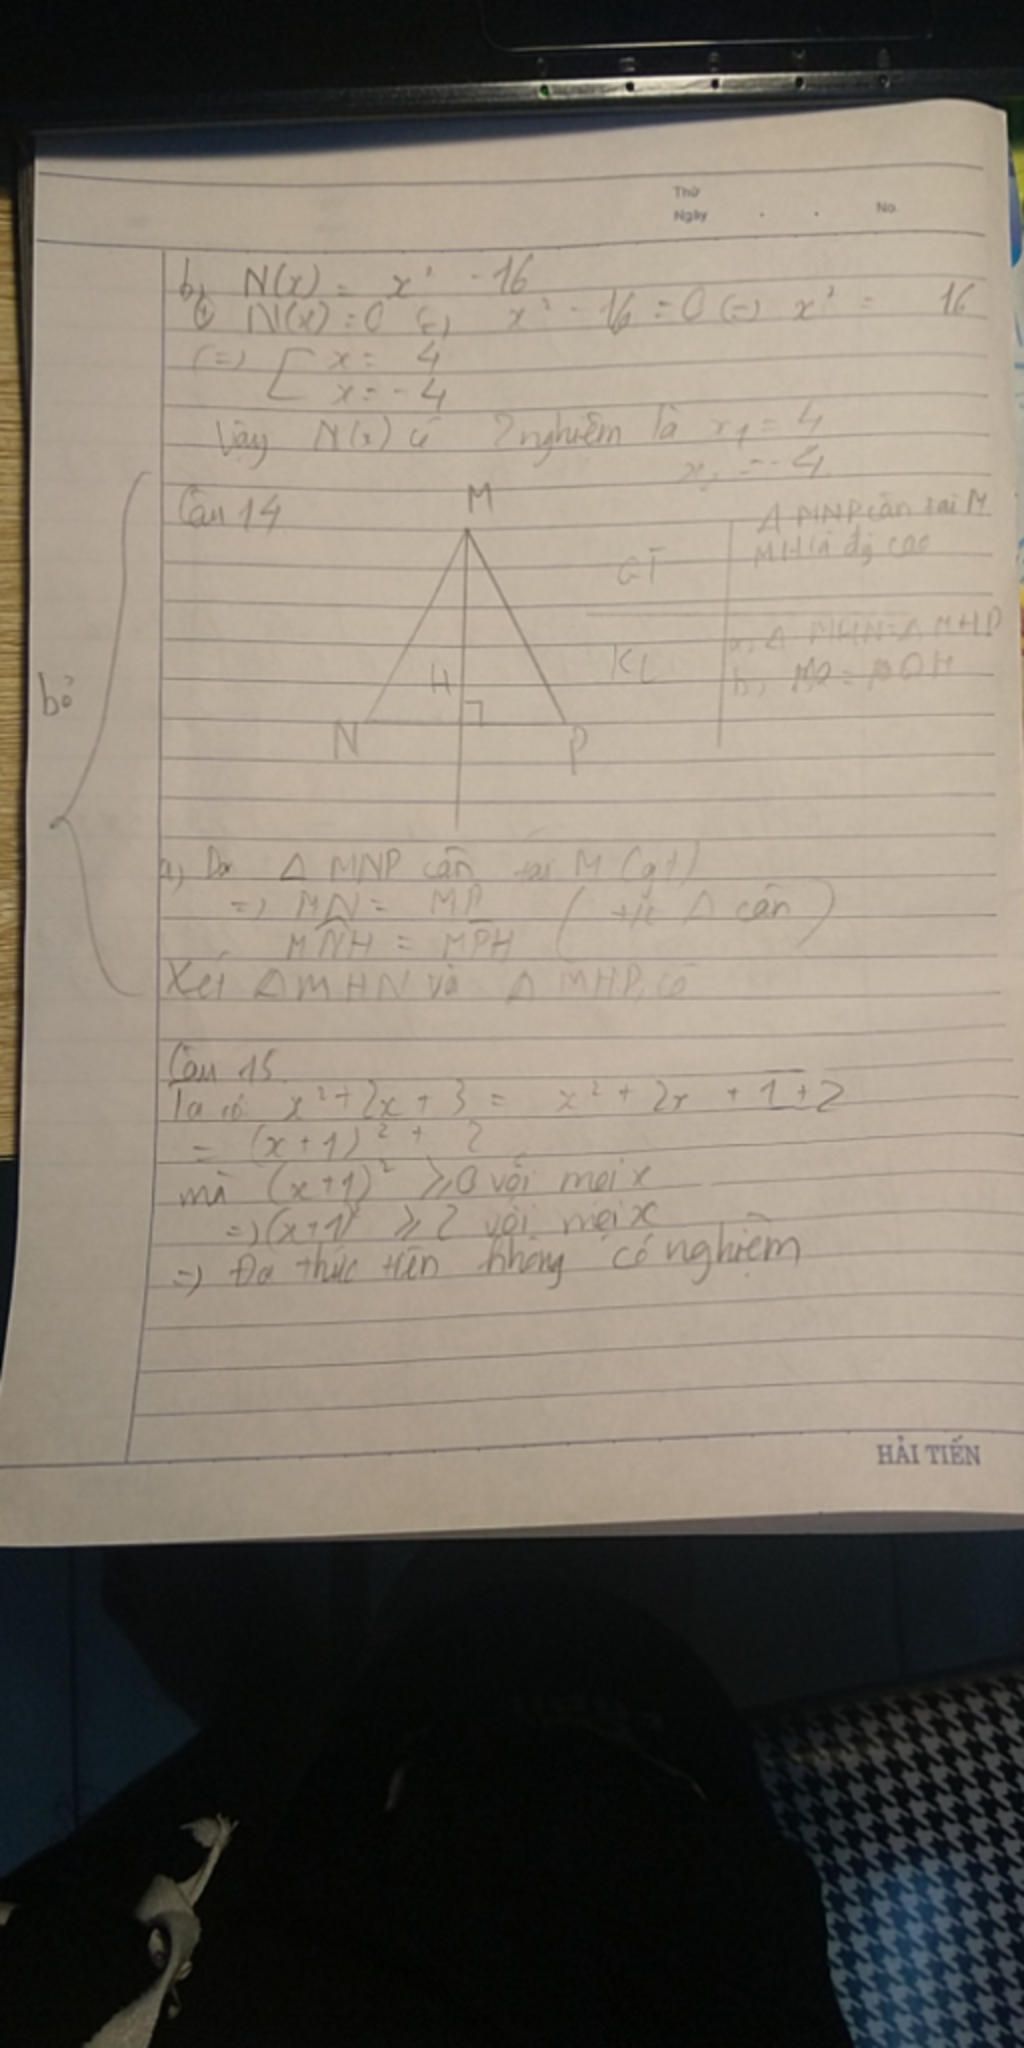 Thứ
Ngày . . No.
b, N(x) = x² - 16
N(x) = 0 (=) x² - 16 = 0 (=) x² = 16
(=) [ x = 4
x = - 4
Vậy N(x) có 2 nghiệm là x₁ = 4
x₂ = - 4
Câu 14
M
GT
Δ MNP cân tại M
MH là độ cao
KL
a, Δ MHN = Δ MHP
b,
H
N
P
bỏ
a, Do Δ MNP cân tại M (gt)
=) MN = MP ( t/c Δ cân )
MNH = MPH
Xét Δ MHN và Δ MHP, có
Câu 15
Ta có x² + 2x + 3 = x² + 2x + 1 + 2
= (x + 1)² + 2
mà (x + 1)² ⩾ 0 với mọi x
=) (x + 1)² ⩾ 2 với mọi x
=) Đa thức trên không có nghiệm
HẢI TIẾN